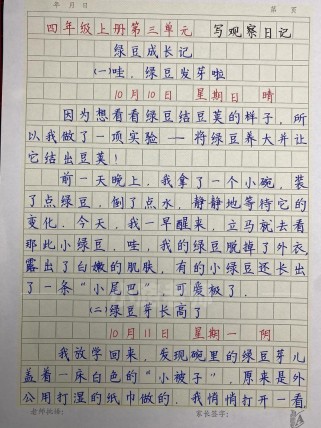 年 月 日 第 页
四年级上册第三单元 写观察日记
绿豆成长记
(一)哇,绿豆发芽啦
10月10日 星期日 晴
因为想看看绿豆结豆荚的样子,所
以我做了一项实验——将绿豆养大并让
它结出豆荚!
前一天晚上,我拿了一个小碗,装
了点绿豆,倒了点水,静静地等待它的
变化。今天,我一早醒来,立马就去看
那些小绿豆,哇,我的绿豆脱掉了外衣,
露出了白嫩的肌肤,有的小绿豆还长出
了一条“小尾巴”,可爱极了。
(二)绿豆芽长高了
10月11日 星期一 阴
我放学回来,发现碗里的绿豆芽儿
盖着一床白色的“小被子”,原来是外
公用打湿的纸巾做的。我悄悄打开一看,
老师批语: 家长签字: